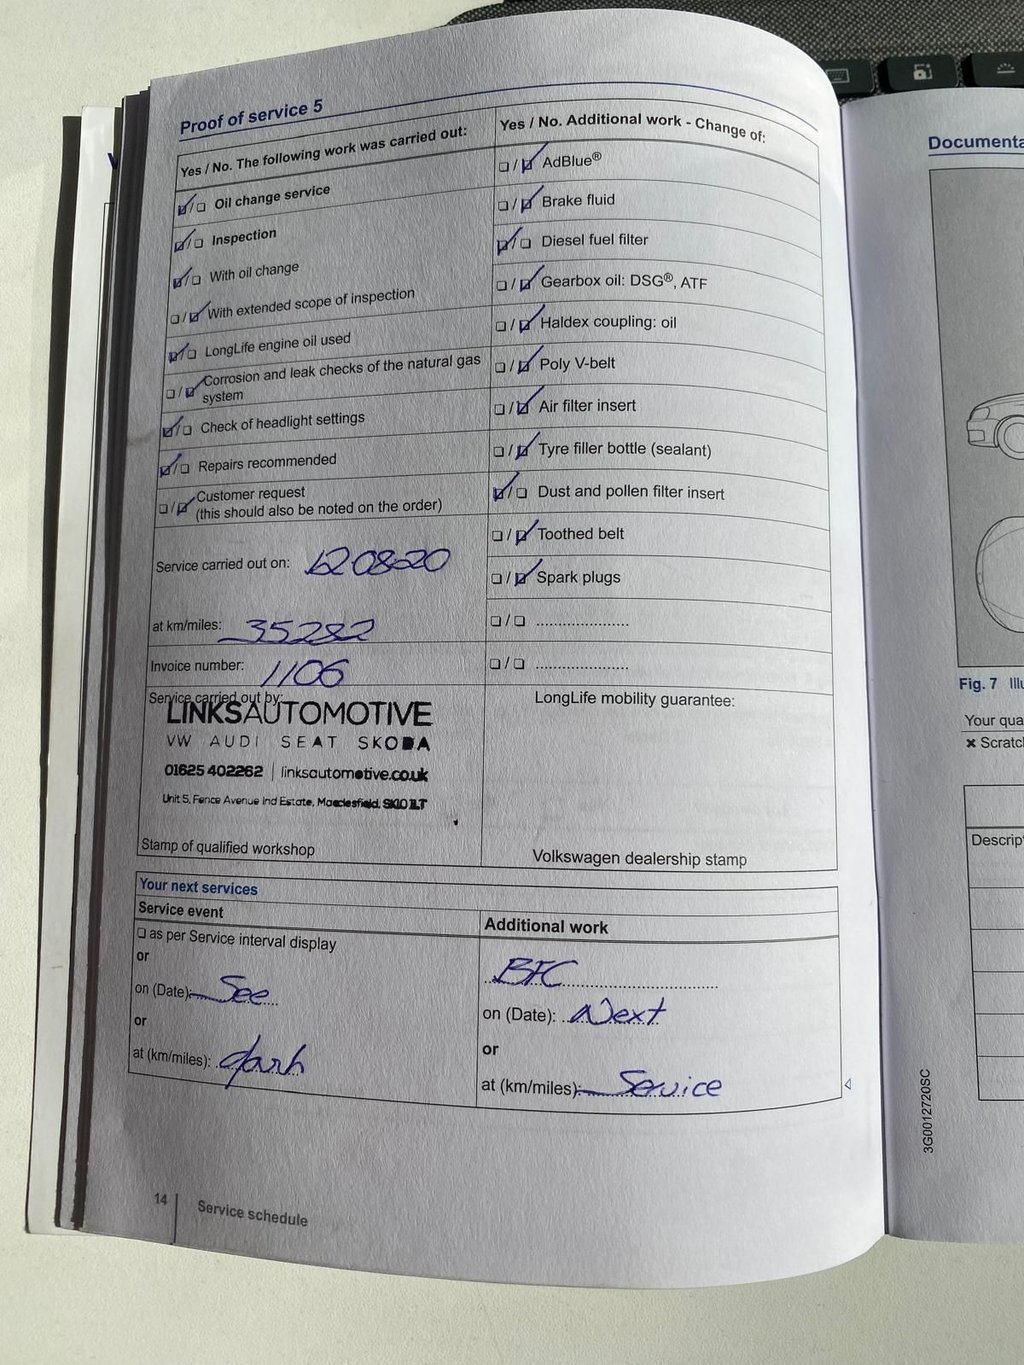 Proof of service 5
Yes / No. The following work was carried out:
☑/☐ Oil change service
☑/☐ Inspection
☑/☐ With oil change
☐/☑ With extended scope of inspection
☑/☐ LongLife engine oil used
☐/☑ Corrosion and leak checks of the natural gas
system
☑/☐ Check of headlight settings
☑/☐ Repairs recommended
☐/☑ Customer request
(this should also be noted on the order)
Service carried out on: 120820
at km/miles: 35282
Invoice number: 1106
Service carried out by:
LINKSAUTOMOTIVE
VW AUDI SEAT SKODA
01625 402262 | linksautomotive.co.uk
Unit 5, Fence Avenue Ind Estate, Macclesfield, SK10 1LT
Stamp of qualified workshop
Yes / No. Additional work - Change of:
☐/☑ AdBlue®
☐/☑ Brake fluid
☑/☐ Diesel fuel filter
☐/☑ Gearbox oil: DSG®, ATF
☐/☑ Haldex coupling: oil
☐/☑ Poly V-belt
☐/☑ Air filter insert
☐/☑ Tyre filler bottle (sealant)
☑/☐ Dust and pollen filter insert
☐/☑ Toothed belt
☐/☑ Spark plugs
☐/☐ .....................
☐/☐ .....................
LongLife mobility guarantee:
Volkswagen dealership stamp
Your next services
Service event
☐ as per Service interval display
or
on (Date): See
or
at (km/miles): dash
Additional work
BFC
on (Date): Next
or
at (km/miles): Service
14
Service schedule
Documenta
Fig. 7 Illu
Your qua
× Scratch
Descrip
3G0012720SC